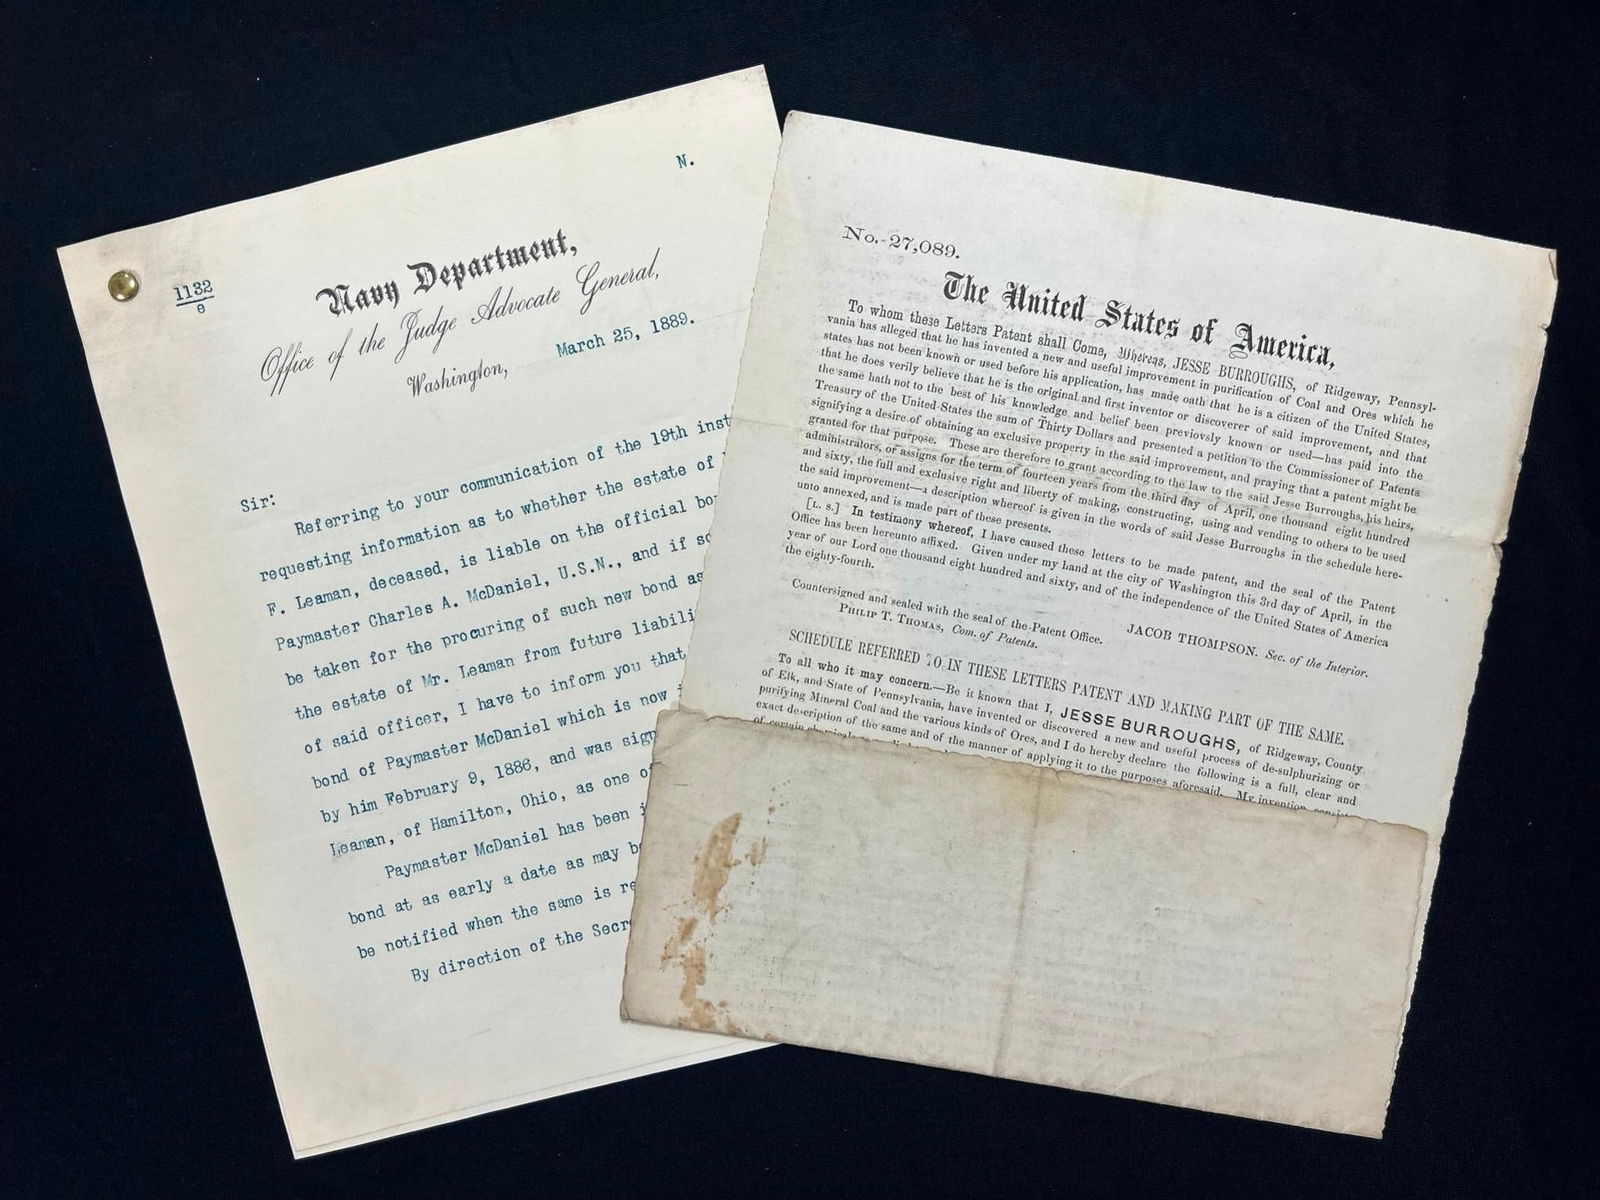 N.
1132
e
Navy Department,
Office of the Judge Advocate General,
Washington, March 25, 1889.
Sir:
Referring to your communication of the 19th inst
requesting information as to whether the estate of
F. Leaman, deceased, is liable on the official bo
Paymaster Charles A. McDaniel, U.S.N., and if so
be taken for the procuring of such new bond as
the estate of Mr. Leaman from future liabili
of said officer, I have to inform you that
bond of Paymaster McDaniel which is now
by him February 9, 1886, and was sign
Leaman, of Hamilton, Ohio, as one of
Paymaster McDaniel has been
bond at as early a date as may b
be notified when the same is re
By direction of the Secre
No. 27,089.
The United States of America,
To whom these Letters Patent shall Come, Whereas, JESSE BURROUGHS, of Ridgeway, Pennsyl-
vania has alleged that he has invented a new and useful improvement in purification of Coal and Ores which he
states has not been known or used before his application, has made oath that he is a citizen of the United States,
that he does verily believe that he is the original and first inventor or discoverer of said improvement, and that
the same hath not to the best of his knowledge and belief been previovsly known or used—has paid into the
Treasury of the United States the sum of Thirty Dollars and presented a petition to the Commissioner of Patents
signifying a desire of obtaining an exclusive property in the said improvement, and praying that a patent might be
granted for that purpose. These are therefore to grant according to the law to the said Jesse Burroughs, his heirs,
administrators, or assigns for the term of fourteen years from the third day of April, one thousand eight hundred
and sixty, the full and exclusive right and liberty of making, constructing, using and vending to others to be used
the said improvement—a description whereof is given in the words of said Jesse Burroughs in the schedule here-
unto annexed, and is made part of these presents.
[L. S.] In testimony whereof, I have caused these letters to be made patent, and the seal of the Patent
Office has been hereunto affixed. Given under my hand at the city of Washington this 3rd day of April, in the
year of our Lord one thousand eight hundred and sixty, and of the independence of the United States of America
the eighty-fourth.
JACOB THOMPSON. Sec. of the Interior.
Countersigned and sealed with the seal of the Patent Office.
PHILIP T. THOMAS, Com. of Patents.
SCHEDULE REFERRED TO IN THESE LETTERS PATENT AND MAKING PART OF THE SAME.
To all who it may concern.—Be it known that I, JESSE BURROUGHS, of Ridgeway, County
of Elk, and State of Pennsylvania, have invented or discovered a new and useful process of de-sulphurizing or
purifying Mineral Coal and the various kinds of Ores, and I do hereby declare the following is a full, clear and
exact description of the same and of the manner of applying it to the purposes aforesaid. My invention consist
of certain